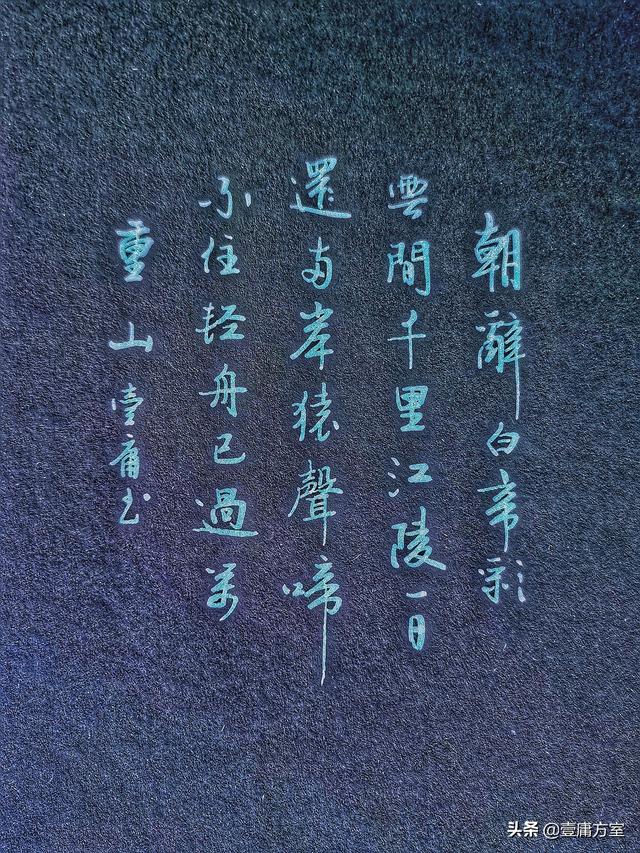 朝辭白帝彩
雲間千里江陵一日
還兩岸猿聲啼
不住輕舟已過萬
重山 壹庸书
头条 @壹庸方室